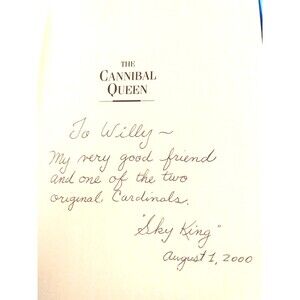 THE
CANNIBAL
QUEEN
To Willy ~
My very good friend
and one of the two
original Cardinals.
"Sky King"
August 1, 2000